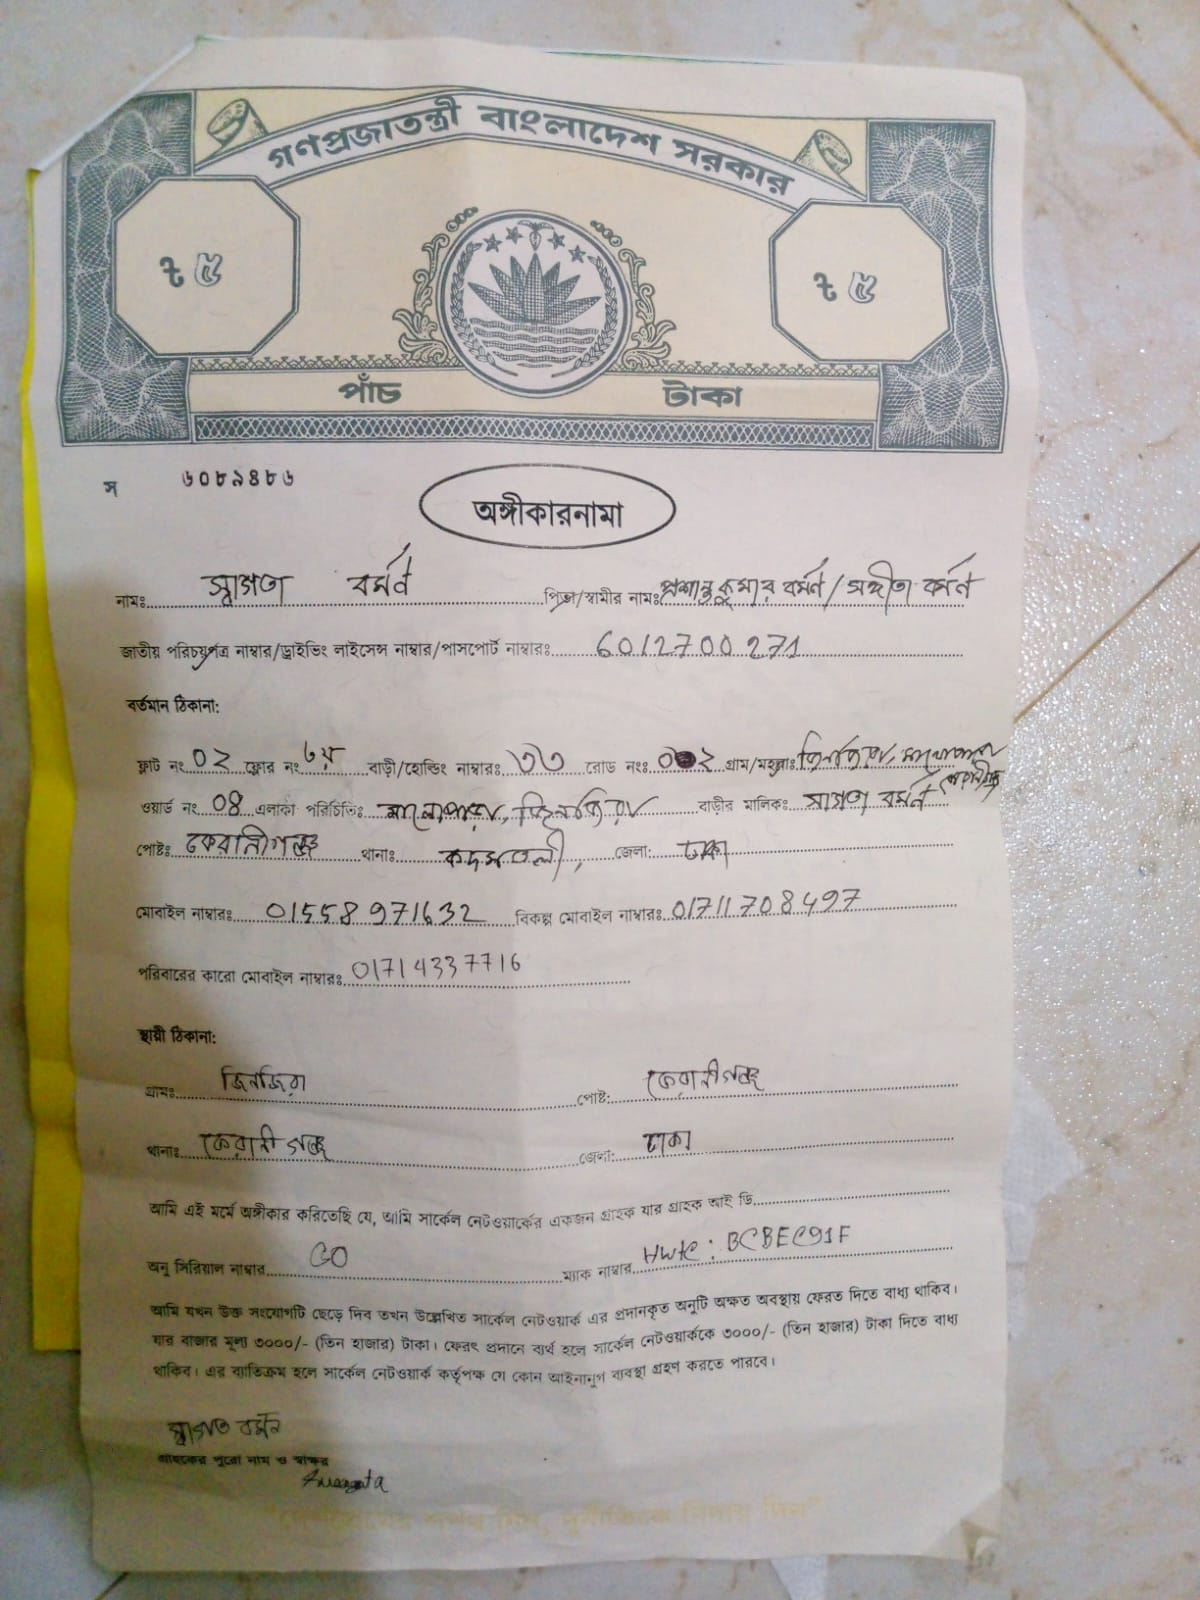 গণপ্রজাতন্ত্রী বাংলাদেশ সরকার
৳ ৫ ৳ ৫
পাঁচ টাকা
স ৬০৮৯৪৮৬
অঙ্গীকারনামা
নামঃ স্বাগতা বর্মন পিতা/স্বামীর নামঃ প্রশান্ত কুমার বর্মন / সঙ্গীতা বর্মন
জাতীয় পরিচয়পত্র নাম্বার/ড্রাইভিং লাইসেন্স নাম্বার/পাসপোর্ট নাম্বারঃ 6012700271
বর্তমান ঠিকানা:
ফ্লাট নং 02 ফ্লোর নং ৩য় বাড়ী/হোল্ডিং নাম্বারঃ ৩৩ রোড নংঃ গ্রাম/মহল্লাঃ জিনজিরা,
ওয়ার্ড নং 08 এলাকা পরিচিতিঃ মালোপাড়া, জিনজিরা বাড়ীর মালিকঃ স্বাগতা বর্মন
পোষ্টঃ কেরানীগঞ্জ থানাঃ কদমতলী, জেলা: ঢাকা
মোবাইল নাম্বারঃ 01558971632 বিকল্প মোবাইল নাম্বারঃ 01711708497
পরিবারের কারো মোবাইল নাম্বারঃ 01714337716
স্থায়ী ঠিকানা:
গ্রামঃ জিনজিরা পোষ্ট: কেরানীগঞ্জ
থানাঃ কেরানীগঞ্জ জেলা: ঢাকা
আমি এই মর্মে অঙ্গীকার করিতেছি যে, আমি সার্কেল নেটওয়ার্কের একজন গ্রাহক যার গ্রাহক আই ডি
অনু সিরিয়াল নাম্বার ম্যাক নাম্বার HWTC: BCBEC91F
আমি যখন উক্ত সংযোগটি ছেড়ে দিব তখন উল্লেখিত সার্কেল নেটওয়ার্ক এর প্রদানকৃত অনুটি অক্ষত অবস্থায় ফেরত দিতে বাধ্য থাকিব।
যার বাজার মূল্য ৩০০০/- (তিন হাজার) টাকা। ফেরৎ প্রদানে ব্যর্থ হলে সার্কেল নেটওয়ার্ককে ৩০০০/- (তিন হাজার) টাকা দিতে বাধ্য
থাকিব। এর ব্যতিক্রম হলে সার্কেল নেটওয়ার্ক কর্তৃপক্ষ যে কোন আইনানুগ ব্যবস্থা গ্রহণ করতে পারবে।
স্বাগতা বর্মন
গ্রাহকের পুরো নাম ও স্বাক্ষর
Swagata